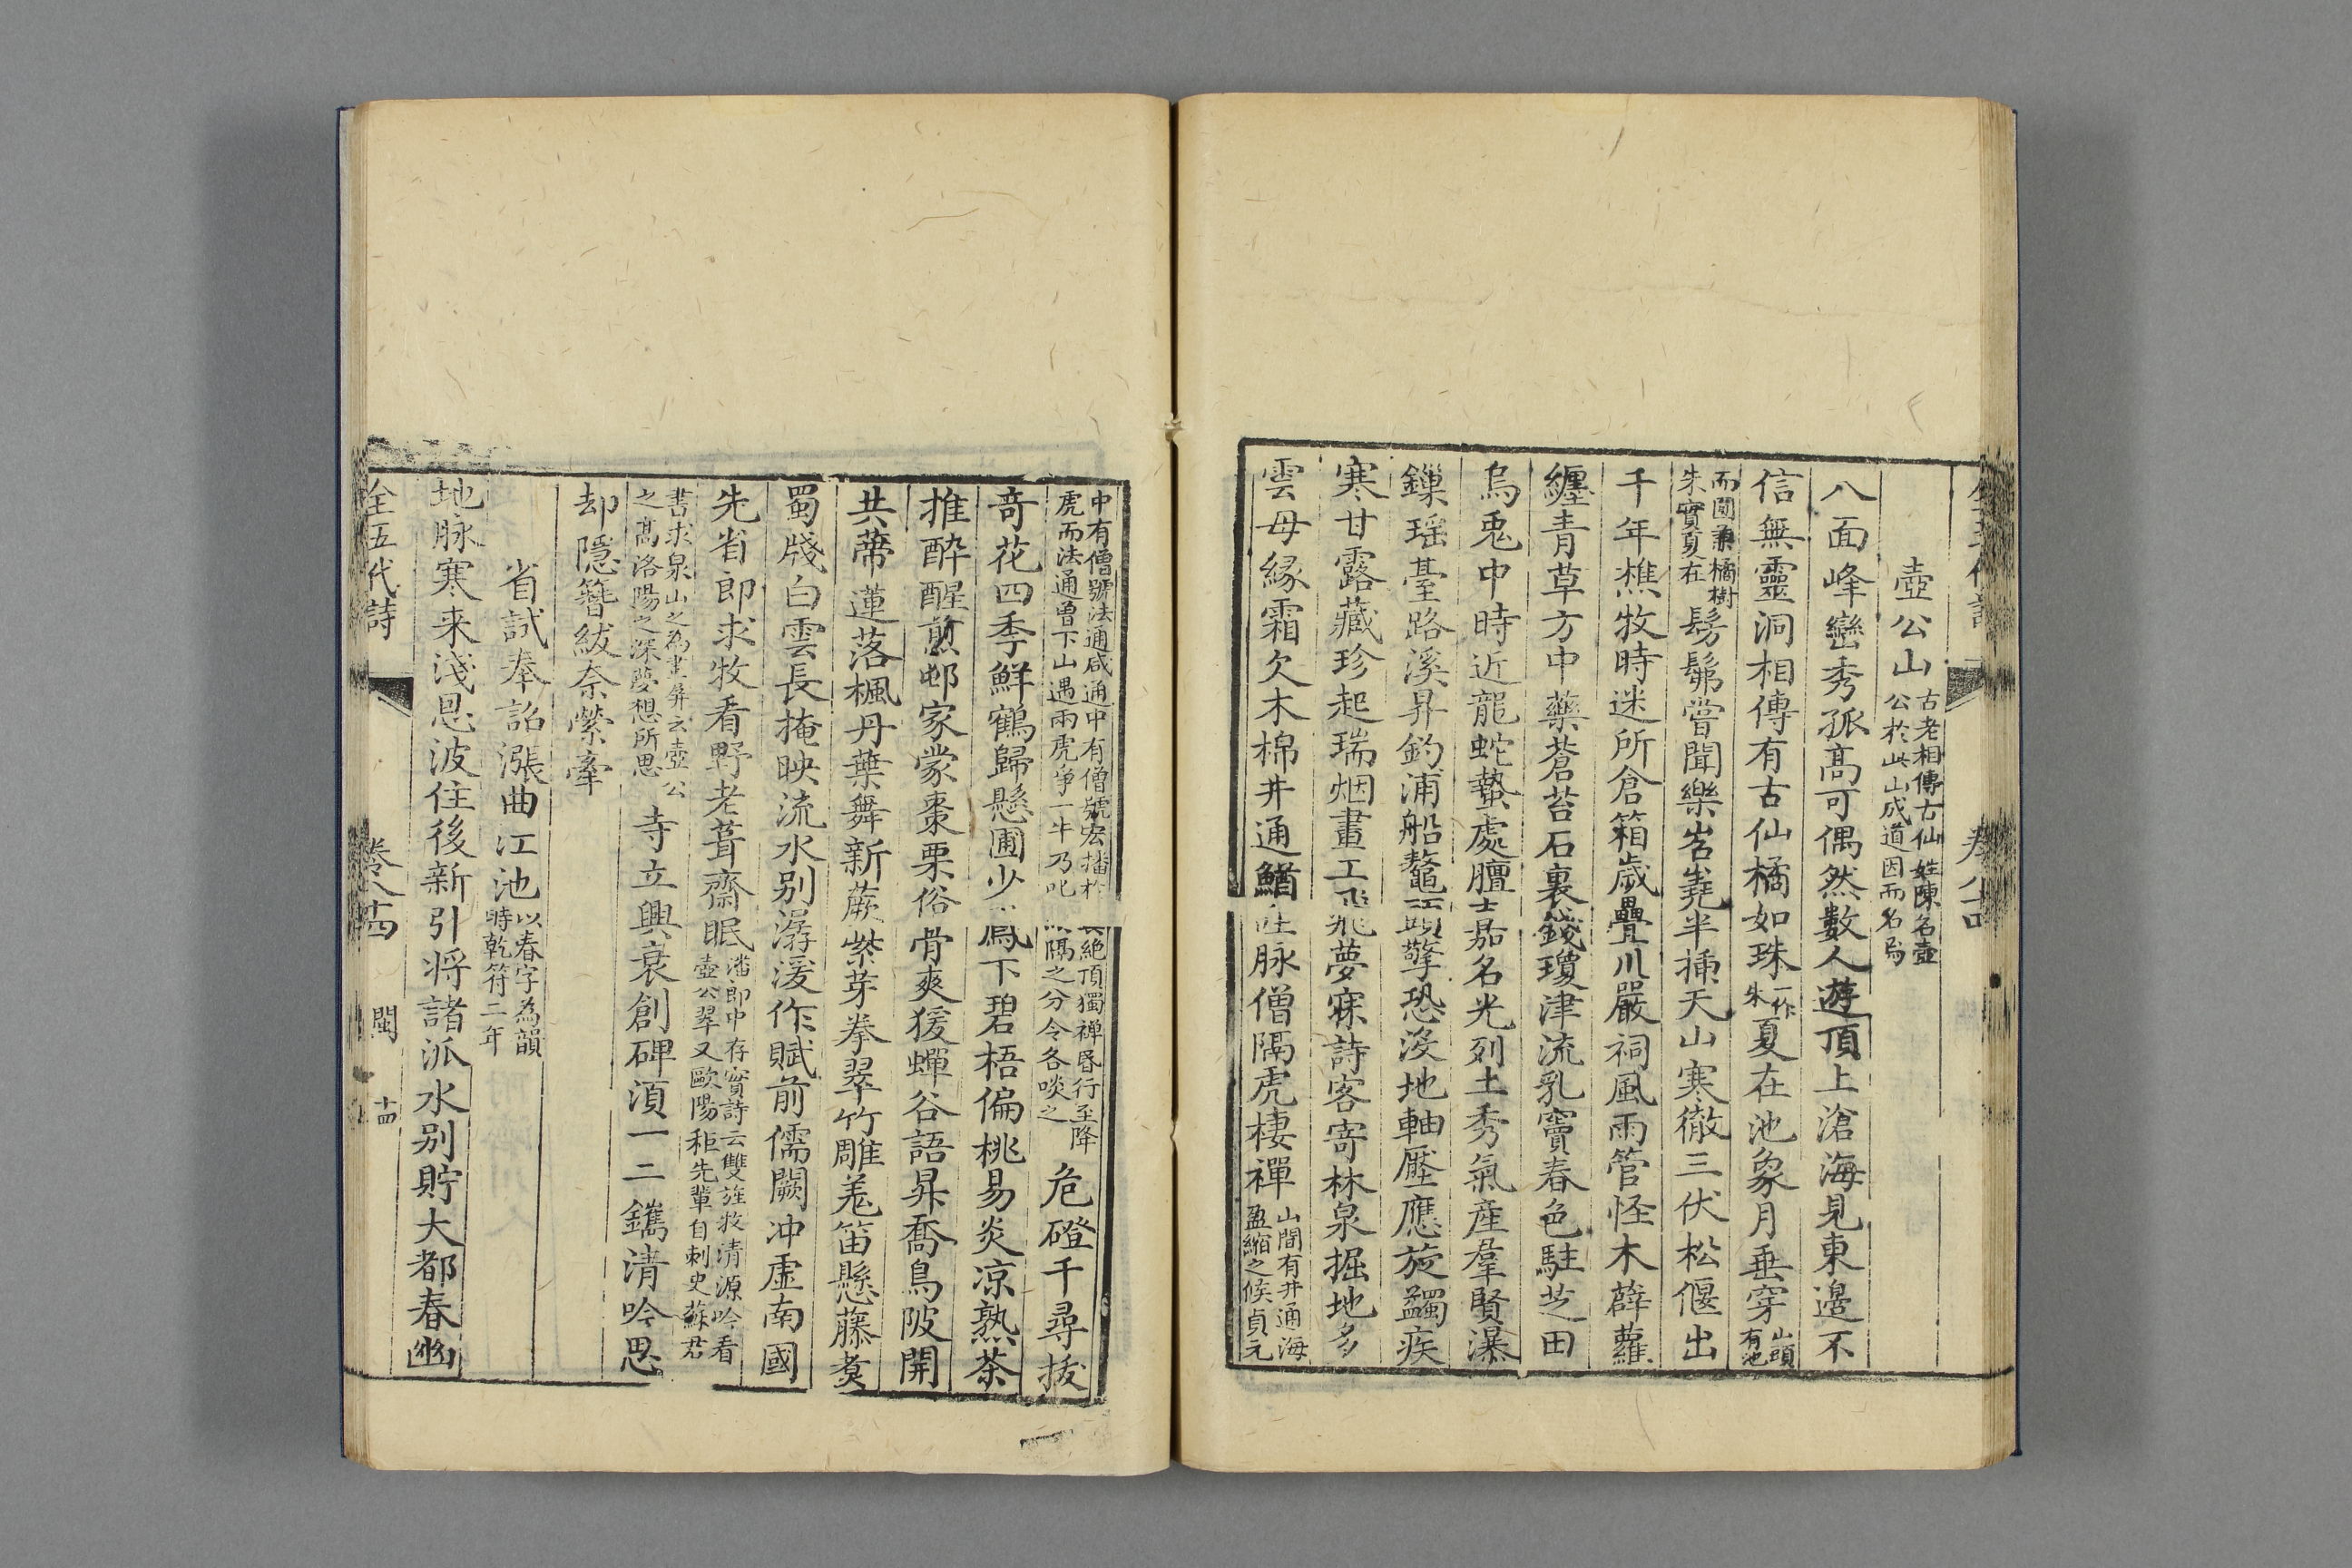 壺公山古老相傳古仙姓陳名壺公於此山成道因而名焉
八面峰巒秀孤高可偶然數人遊頂上滄海見東邉不
信無靈洞相傳有古仙橘如珠一作朱夏在池象月垂穿山頭有池
而圓兼橘樹朱實夏在髣髴嘗聞樂岧嶤半插天山寒徹三伏松偃出
千年樵牧時迷所倉箱歲疊川嚴祠風雨管怪木薜蘿
纏青草方中藥蒼苔石裏錢瓊津流乳竇春色駐芝田
烏兎中時近龍蛇蟄處膻士嘉名光列土秀氣産羣賢瀑
鏁瑶臺路溪昇釣浦船鼇頭擎恐没地軸壓應旋蠲疾
寒甘露藏珍起瑞烟畫工飛夢寐詩客寄林泉掘地多
雲母縁霜欠木棉井通鰌吐脉僧隔虎棲禪山間有井通海盈縮之候貞元
中有僧號法通咸通中有僧號宏播於絶頂獨禪昏行至降
虎而法通曾下山遇兩虎爭一牛乃叱隔之分令各啖之危磴千尋拔
奇花四季鮮鶴歸懸圃少鳳下碧梧偏桃易炎凉熟茶
推酔醒煎邨家蒙棗栗俗骨爽猨蟬谷語昇喬鳥陂開
共蒂蓮落楓丹葉舞新蕨紫芽拳翠竹雕羗笛懸藤煑
蜀牋白雲長掩映流水别潺湲作賦前儒闕冲虛南國
先省郎求牧看野老葺齋眠潘郎中存實詩云雙旌牧清源吟看壺公翠又歐陽秬先輩自刺史蘇君
書求泉山之為畫屏云壺公之高洛陽之深夢想所思寺立興衰創碑湏一二鐫清吟思
却隱簪紱奈縈牽
省試奉詔漲曲江池以春字為韻時乾符二年
地脉寒来淺恩波住後新引将諸派水别貯大都春幽
全五代詩 卷八十四 閩 十四